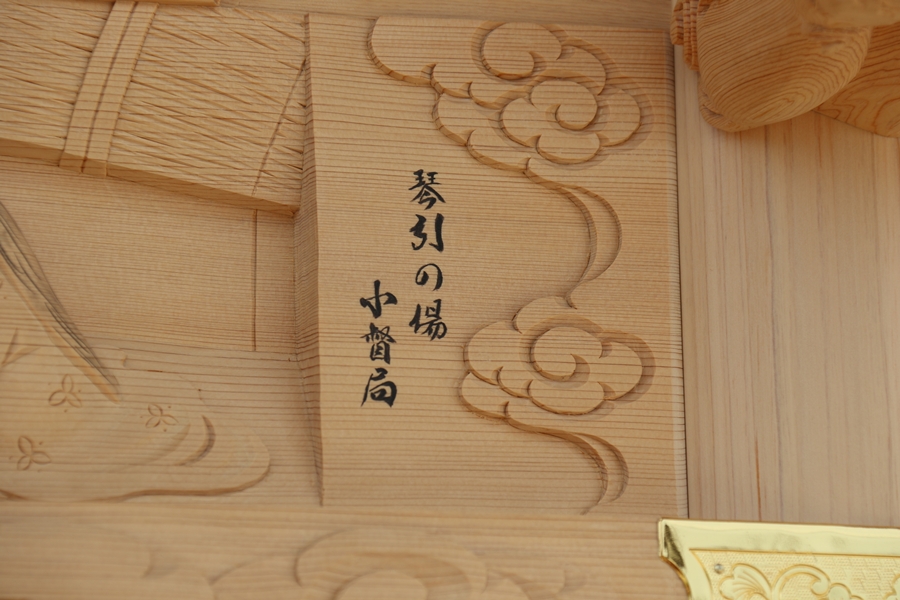 琴引の場
小督局